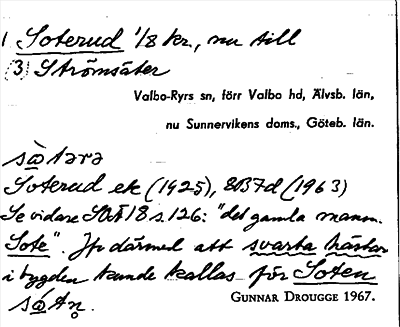 1 Soterud 1/8 kr., nu till
(3) Strömsäter
Valbo-Ryrs sn, förr Valbo hd, Älvsb. län,
nu Sunnervikens doms., Göteb. län.
sò̱tərə
Soterud ek (1925), 8B7d (1963)
Se vidare SOÄ 18 s. 126: "det gamla mansn.
Sote". Jfr därmed att svarta hästar
i bygden kunde kallas för Soten
GUNNAR DROUGGE 1967.